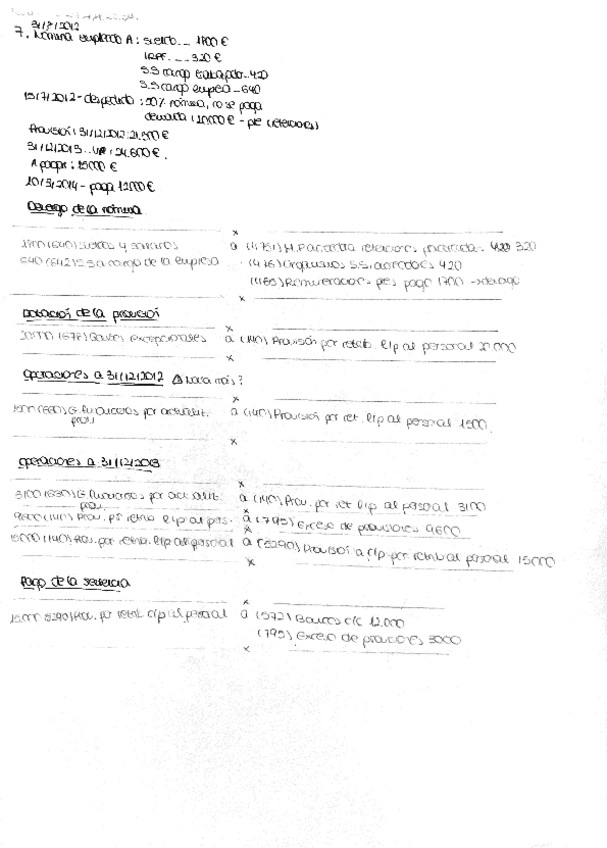 31/7/2012
7. Nómina empleado A: sueldo... 1800 €
IRPF.... 320 €
S.S cargo trabajador.. 420
S.S cargo empresa.. 640
15/7/2012 - despedido : 50% nómina, no se paga
demanda : 20000 € - pte (retenciones)
Provisión : 31/12/2012: 21.500 €
31/12/2013.. : 24.600 €.
A pagar : 15000 €
20/3/2014 - paga 12000 €
Devengo de la nómina
x
(640) Sueldos y salarios a (4751) H.P acreedora retenciones practicadas 320
640 (642) S.S a cargo de la empresa (476) Organismos S.S. acreedores 420
(465) Remuneraciones ptes pago 1700 → devengo
x
Dotación de la provisión
x
20000 (678) Gastos excepcionales a (140) Provisión por retrib. l/p al personal 20.000
x
Operaciones a 31/12/2012 Nova más?
x
1500 (660) G. financieros por actualit. prov. a (140) Provisión por ret. l/p al personal 1500.
x
Operaciones a 31/12/2013
x
3100 G. financieros por actualit. prov. a (140) Prov. por ret l/p al personal 3100
x
9600 (140) Prov. por retrib l/p al pers. a (795) Exceso de provisiones 9600
x
15000 (140) Prov. por retrib. l/p al personal a (5290) Provisión a c/p por retrib al personal 15000
x
Pago de la sentencia
x
15000 5290) Prov. por retrib c/p al personal a (572) Bancos c/c 12.000
(795) Exceso de provisiones 3000
x